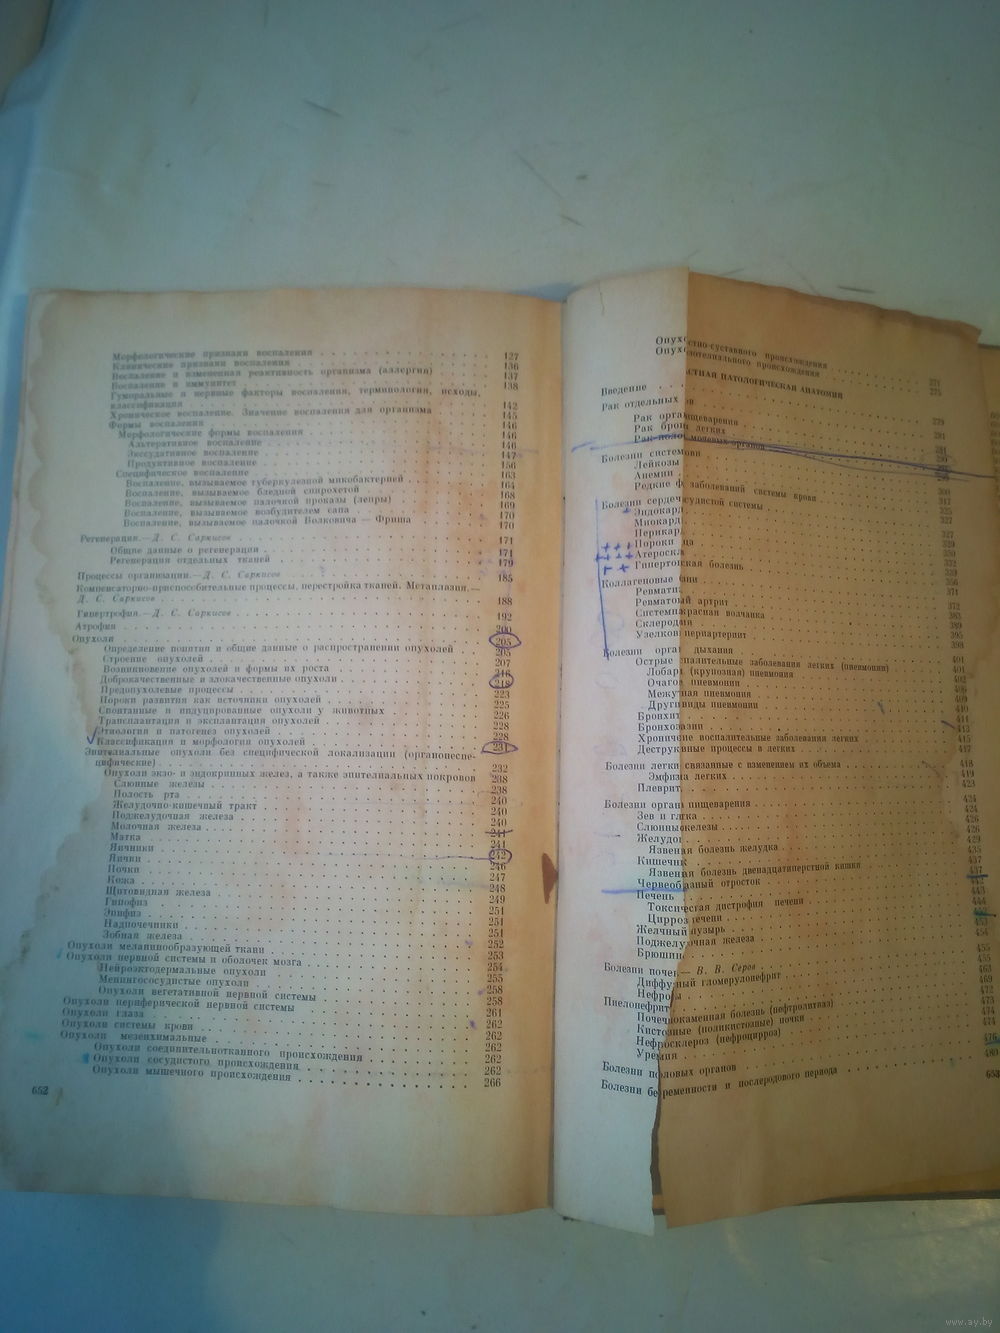 Морфологические признаки воспаления 127
Клинические признаки воспаления 136
Воспаление и измененная реактивность организма (аллергия) 137
Воспаление и иммунитет 138
Гуморальные и нервные факторы воспаления, терминология, исходы,
классификация 142
Хроническое воспаление. Значение воспаления для организма 145
Формы воспаления 146
Морфологические формы воспаления 146
Альтеративное воспаление 146
Экссудативное воспаление 147
Продуктивное воспаление 156
Специфическое воспаление 163
Воспаление, вызываемое туберкулезной микобактерией 164
Воспаление, вызываемое бледной спирохетой 168
Воспаление, вызываемое палочкой проказы (лепры) 169
Воспаление, вызываемое возбудителем сапа 170
Воспаление, вызываемое палочкой Волковича — Фриша 170
Регенерация.— Д. С. Саркисов 171
Общие данные о регенерации 171
Регенерация отдельных тканей 179
Процессы организации.— Д. С. Саркисов 185
Компенсаторно-приспособительные процессы, перестройка тканей. Метаплазия.—
Д. С. Саркисов 188
Гипертрофия.— Д. С. Саркисов 192
Атрофия 200
Опухоли 205
Определение понятия и общие данные о распространении опухолей 205
Строение опухолей 207
Возникновение опухолей и формы их роста 216
Доброкачественные и злокачественные опухоли 218
Предопухолевые процессы 223
Пороки развития как источники опухолей 225
Спонтанные и индуцированные опухоли у животных 226
Трансплантация и эксплантация опухолей 228
Этиология и патогенез опухолей 228
Классификация и морфология опухолей 231
Эпителиальные опухоли без специфической локализации (органонеспе-
цифические) 232
Опухоли экзо- и эндокринных желез, а также эпителиальных покровов 238
Слюнные железы 238
Полость рта 240
Желудочно-кишечный тракт 240
Поджелудочная железа 240
Молочная железа 241
Матка 241
Яичники 242
Яички 246
Почки 247
Кожа 248
Щитовидная железа 249
Гипофиз 251
Эпифиз 251
Надпочечники 251
Зобная железа 252
Опухоли меланинообразующей ткани 253
Опухоли нервной системы и оболочек мозга 254
Нейроэктодермальные опухоли 255
Менингососудистые опухоли 258
Опухоли вегетативной нервной системы 258
Опухоли периферической нервной системы 261
Опухоли глаза 262
Опухоли системы крови 262
Опухоли мезенхимальные 262
Опухоли соединительнотканного происхождения 262
Опухоли сосудистого происхождения 262
Опухоли мышечного происхождения 266
652
Опухо стно-суставного происхождения 271
Опухо происхождения 275
СТНАЯ ПАТОЛОГИЧЕСКАЯ АНАТОМИЯ
Введение 279
Рак отдельных
Рак орга ищеварения 281
Рак брон легких
Рак мочевых органов
Болезни системы
Лейкозы
Анемии
Редкие заболеваний системы крови
Болезни сердеч судистой системы
Эндокард
Миокард
Перикар
Пороки
Атероск
Гипертон ская болезнь
Коллагеновые
Ревмати
Ревматоид артрит
Системна красная волчанка
Склеродия
Узелков периартериит
Болезни орга дыхания
Острые палительные заболевания легких (пневмонии) 401
Лобар (крупозная) пневмония 401
Очагов пневмонии 402
Межут ная пневмония
Други виды пневмонии
Бронхит 411
Бронхоэ
Хронические воспалительные заболевания легких
Деструк ные процессы в легких 417
Болезни легки связанные с изменением их объема 418
Эмфиз легких 419
Плеврит 423
Болезни орган пищеварения 424
Зев и гл тка 424
Слюнны железы 426
Желудо 426
Язвенн болезнь желудка 429
Кишечни 435
Язвенная болезнь двенадцатиперстной кишки 437
Червеоб разный отросток 437
Печень
Токсич ская дистрофия печени
Цирроз печени
Желчный пузырь 453
Поджелу дочная железа 454
Брюшин 455
Болезни почек — В. В. Серов 455
Диффуз ный гломерулонефрит 463
Нефро 469
Пиелонефрит 472
Почечнокаменная болезнь (нефролитиаз) 473
Кистозные (поликистозные) почки 474
Нефросклероз (нефроцирроз) 474
Уремия 476
Болезни половых органов 480
Болезни беременности и послеродового периода
653
www.ay.by